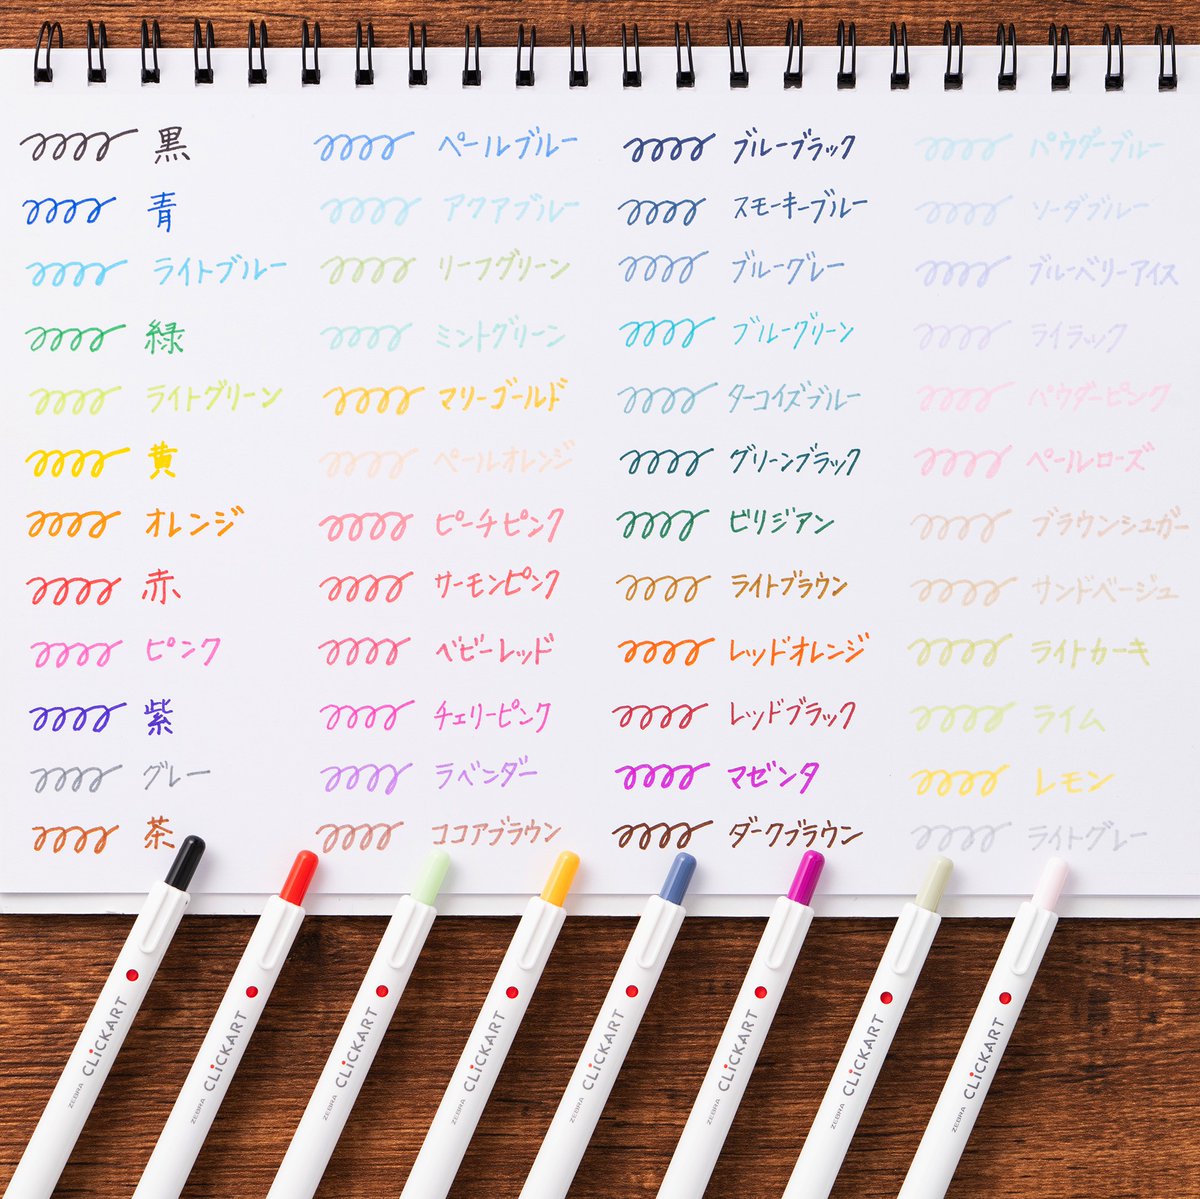 黒
青
ライトブルー
緑
ライトグリーン
黄
オレンジ
赤
ピンク
紫
グレー
茶
ペールブルー
アクアブルー
リーフグリーン
ミントグリーン
マリーゴールド
ペールオレンジ
ピーチピンク
サーモンピンク
ベビーレッド
チェリーピンク
ラベンダー
ココアブラウン
ブルーブラック
スモーキーブルー
ブルーグレー
ブルーグリーン
ターコイズブルー
グリーンブラック
ビリジアン
ライトブラウン
レッドオレンジ
レッドブラック
マゼンタ
ダークブラウン
パウダーブルー
ソーダブルー
ブルーベリーアイス
ライラック
パウダーピンク
ペールローズ
ブラウンシュガー
サンドベージュ
ライトカーキ
ライム
レモン
ライトグレー
ZEBRA CLiCKART
ZEBRA CLiCKART
ZEBRA CLiCKART
ZEBRA CLiCKART
ZEBRA CLiCKART
ZEBRA CLiCKART
ZEBRA CLiCKART
ZEBRA CLiCKART